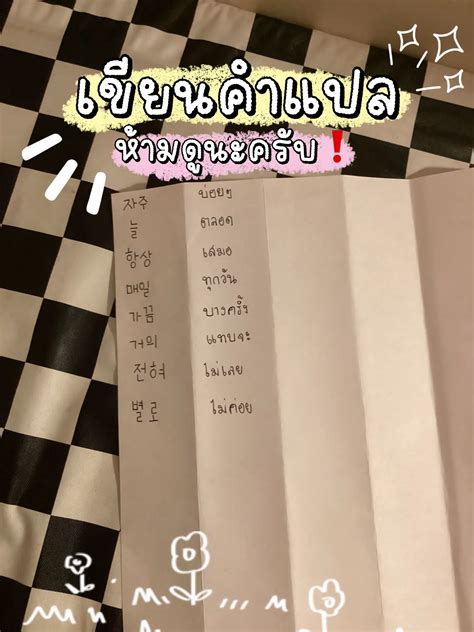 เขียนคำแปล
ห้ามดูนะครับ❗
자주 บ่อยๆ
늘 ตลอด
항상 เสมอ
매일 ทุกวัน
가끔 บางครั้ง
거의 แทบจะ
전혀 ไม่เลย
별로 ไม่ค่อย